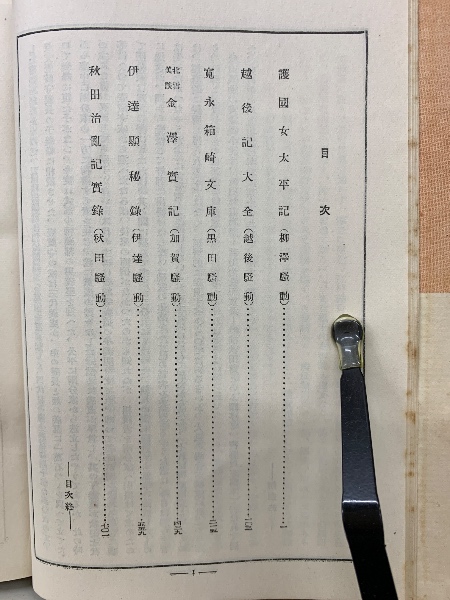 目次
護國女太平記(柳澤騷動)……一
越後記大全(越後騷動)……
寬永箱崎文庫(黑田騷動)……
北雪美談金澤實記(加賀騷動)……
伊達顯秘錄(伊達騷動)……
秋田治亂記實錄(秋田騷動)……
—目次終—
— 1 —